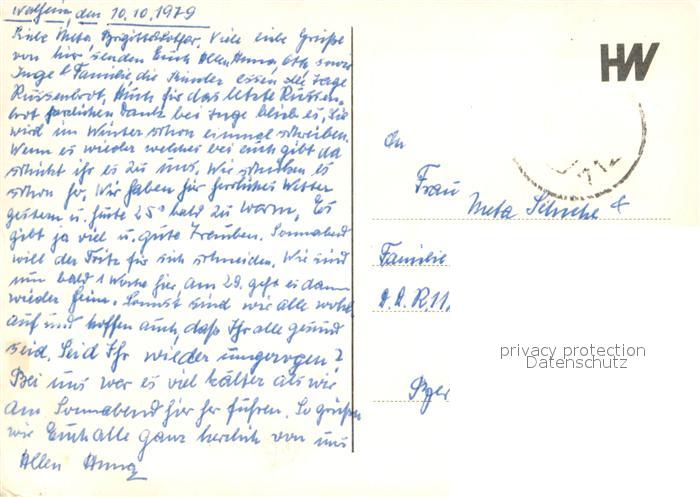 Welheim, den 10.10.1979
Liebe Meta, Brigitte Lothar, Viele liebe Grüße
von hier senden Euch Allen Anna, Otto sowie
Inge & Familie, die Kinder essen alle Tage
Russenbrot, Auch für das letzte Russen
brot herzlichen Dank bei Inge blieb es, Sie
wird im Winter schon einmal schreiben.
Wenn es wieder welches bei euch gibt da
schickt ihr es zu uns, Wir schicken es
schon ho, Wir haben hir herrliches Wetter
gestern u. heute 25° bald zu warm, Es
gibt ja viel u. gute Trauben. Sonnabend
will der Fritz für sich schneiden, Wir sind
nun bald 1 Woche hir, am 29. geht es dann
wieder heim. Sonnst sind wir alle wohl
auf und hoffen auch, daß Ihr alle gesund
seid. Seid Ihr wieder umgezogen?
Bei uns war es viel kälter als wir
am Sonnabend hir her fuhren. So grüßen
wir Euch alle ganz herzlich von uns
Allen Anna
HW
712
An
Frau
Meta &
Familie
D.D.R. 11.
privacy protection
Datenschutz